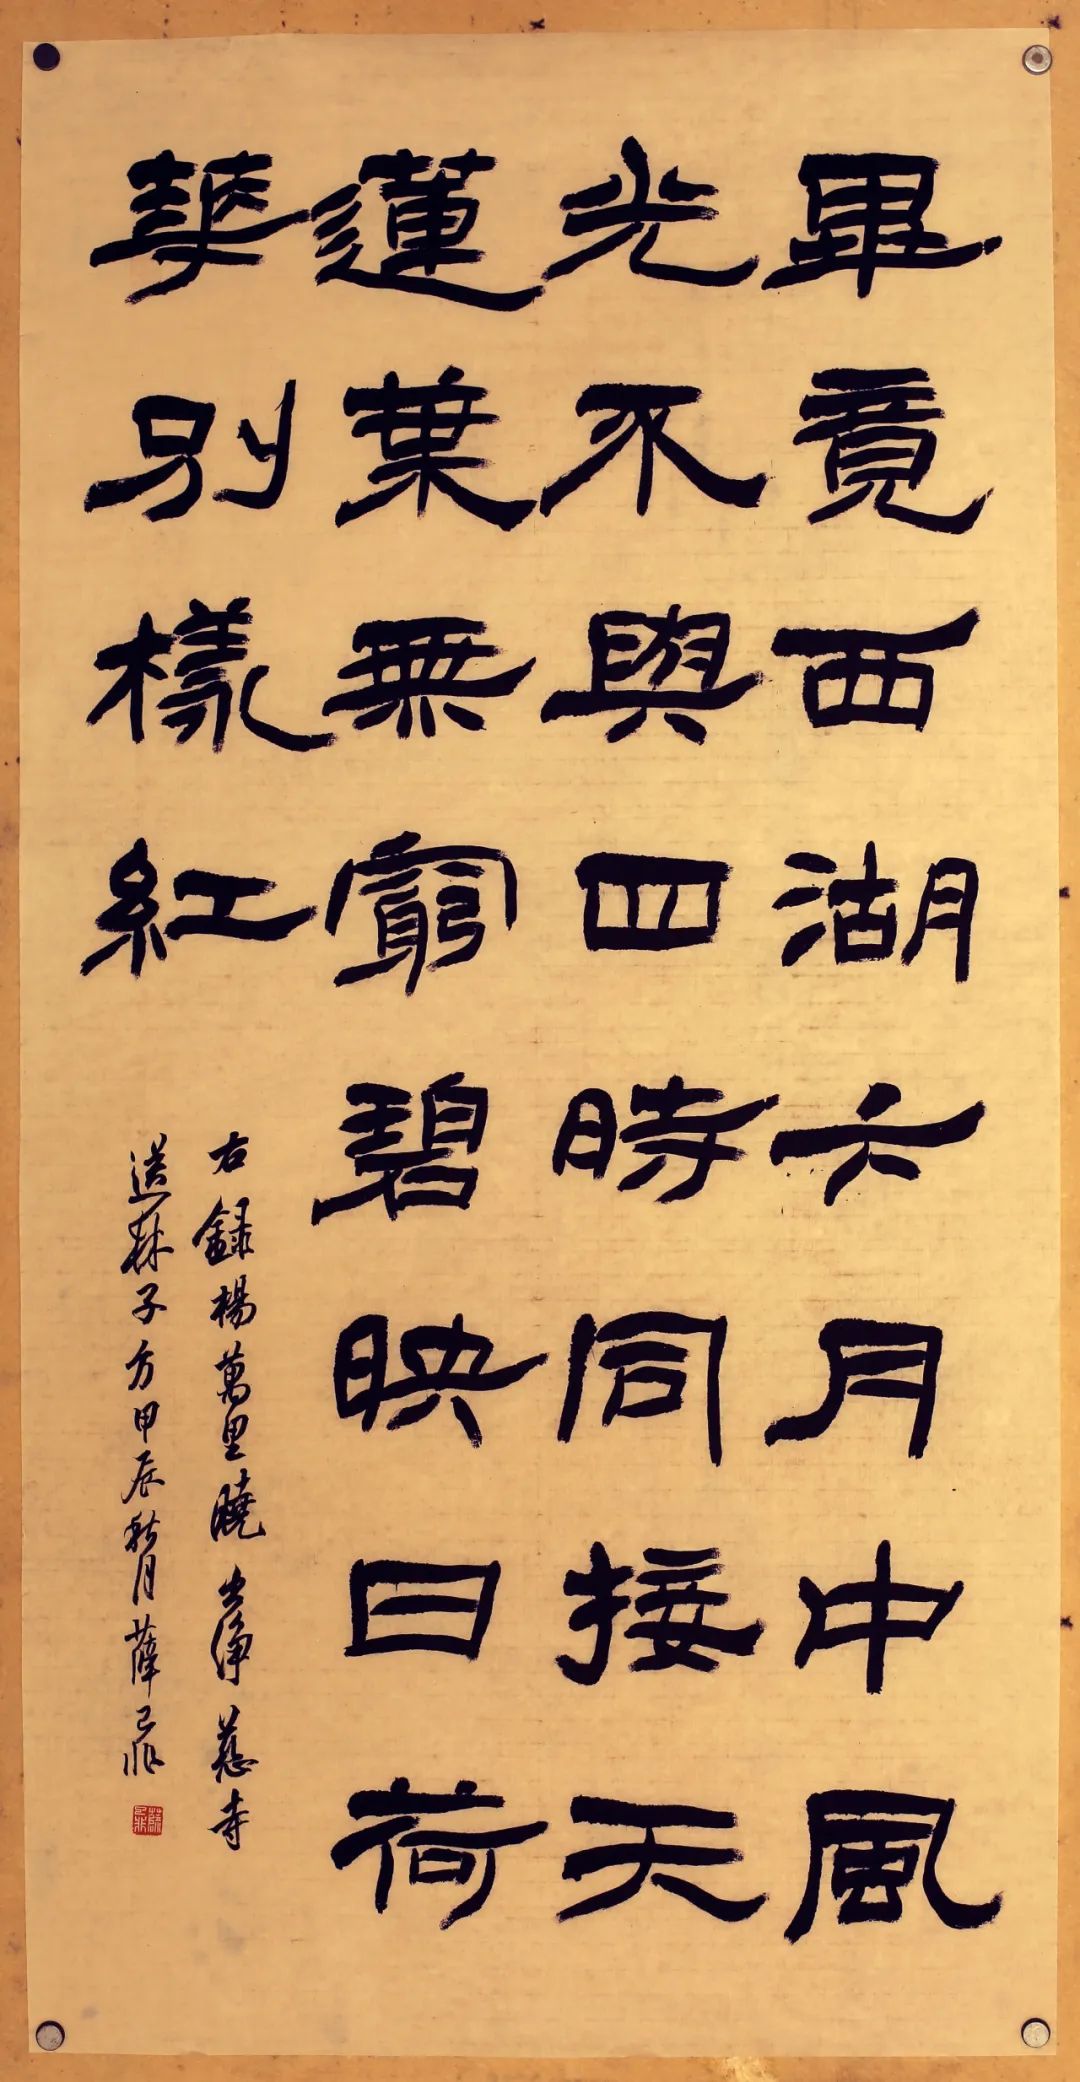 畢竟西湖六月中風
光不與四時同接天
蓮葉無窮碧映日荷
華別樣紅
右録楊萬里曉出淨慈寺
送林子方甲辰秋月薛己非
薛己非